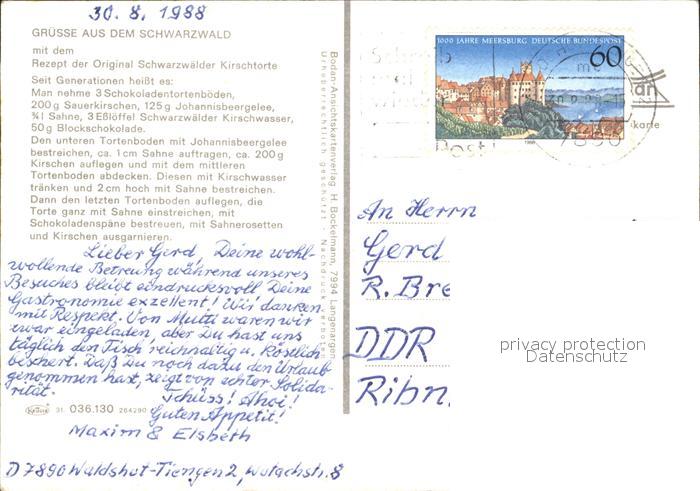 30. 8. 1988
GRÜSSE AUS DEM SCHWARZWALD
mit dem
Rezept der Original Schwarzwälder Kirschtorte
Seit Generationen heißt es:
Man nehme 3 Schokoladentortenböden,
200 g Sauerkirschen, 125 g Johannisbeergelee,
¾ l Sahne, 3 Eßlöffel Schwarzwälder Kirschwasser,
50 g Blockschokolade.
Den unteren Tortenboden mit Johannisbeergelee
bestreichen, ca. 1 cm Sahne auftragen, ca. 200 g
Kirschen auflegen und mit dem mittleren
Tortenboden abdecken. Diesen mit Kirschwasser
tränken und 2 cm hoch mit Sahne bestreichen.
Dann den letzten Tortenboden auflegen, die
Torte ganz mit Sahne einstreichen, mit
Schokoladenspäne bestreuen, mit Sahnerosetten
und Kirschen ausgarnieren.
Lieber Gerd, Deine wohl-
wollende Betreuung während unseres
Besuches bleibt eindrucksvoll. Deine
Gastronomie exzellent! Wir danken
mit Respekt. Von Mutti waren wir
zwar eingeladen, aber Du hast uns
täglich den Tisch reichhaltig u. köstlich
beschert. Daß Du noch dazu den Urlaub
genommen hast, zeigt von echter Solida-
rität.
Tschüss! Ahoi!
Guten Appetit!
Maxim & Elsbeth
Krüger 31. 036.130 264290
D 7890 Waldshut-Tiengen 2, Wutachstr. 8
Bodan-Ansichtskartenverlag H. Bockelmann, 7994 Langenargen
Urheberrechtlich geschützt · Nachdruck verboten
1000 JAHRE MEERSBURG DEUTSCHE BUNDESPOST
60
1988
Post!
7890
karte
An Herrn
Gerd
R. Bre
DDR
Ribn.
privacy protection
Datenschutz